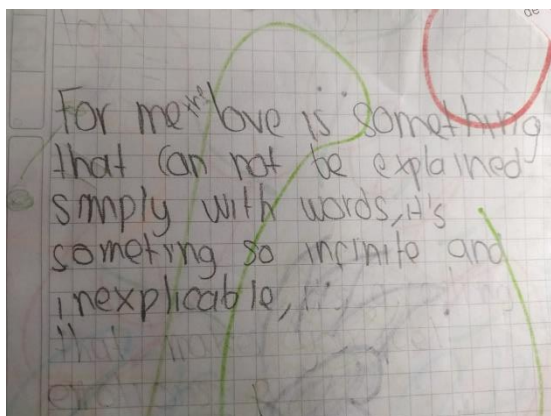 de
For me the love is something
that can not be explained
simply with words, it's
someting so infinite and
inexplicable, it's
that